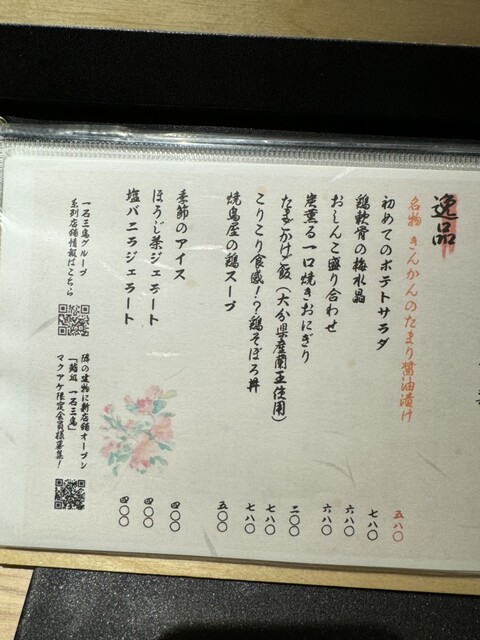 逸品
名物 きんかんのたまり醤油漬け 五八〇
初めてのポテトサラダ 七八〇
鶏軟骨の梅水晶 六八〇
おしんこ盛り合わせ 六八〇
炭薫る一口焼きおにぎり 二〇〇
たまごかけご飯(大分県産蘭王使用) 七八〇
こりこり食感!?鶏そぼろ丼 七八〇
焼鳥屋の鶏スープ 五〇〇
季節のアイス 四〇〇
ほうじ茶ジェラート 四〇〇
塩バニラジェラート 四〇〇
一石三鳥グループ
系列店舗情報はこちら
隣の建物に新店舗オープン
「鮨処 一石三鳥」
マクアケ限定会員様募集!